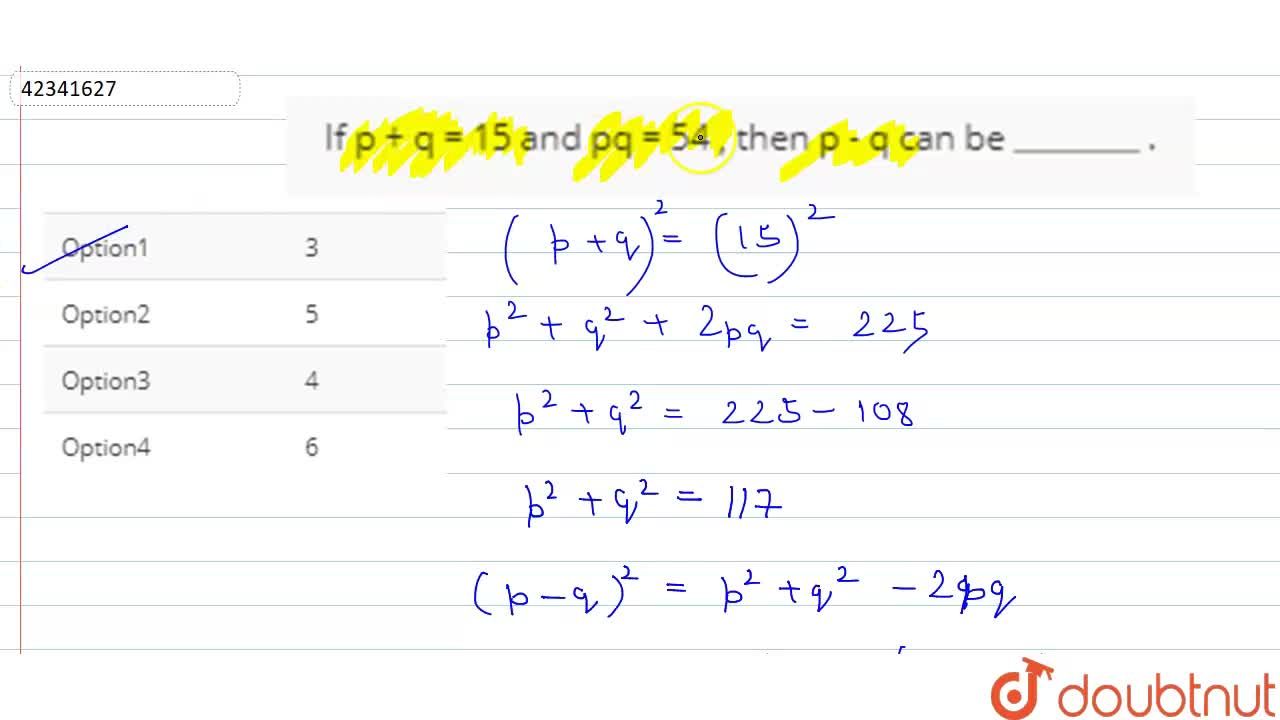 42341627
If p + q = 15 and pq = 54 , then p - q can be ________ .
Option1 3
Option2 5
Option3 4
Option4 6
(p + q)² = (15)²
p² + q² + 2pq = 225
p² + q² = 225 - 108
p² + q² = 117
(p - q)² = p² + q² - 2pq
doubtnut